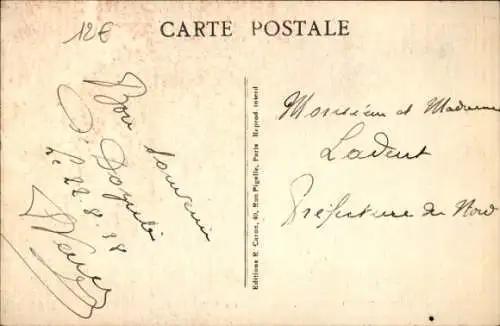 12€
CARTE POSTALE
Bon souvenir
Le 22-8-38
Editions R. Caron, 40, Rue Pigalle, Paris Reprod interd
Monsieur et Madame
Ladent
Préfecture du Nord